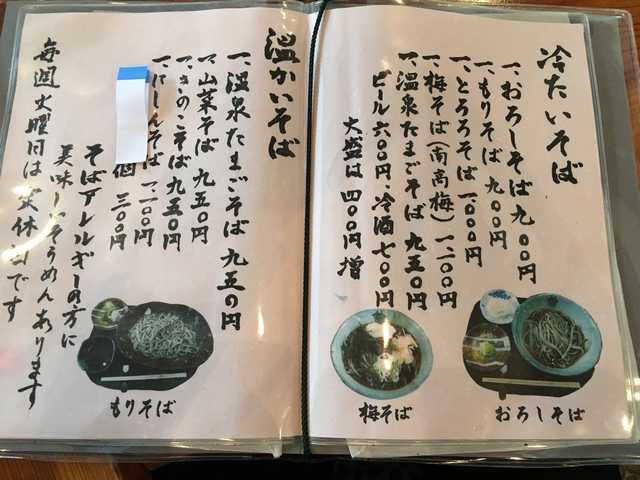 冷たいそば
一、おろしそば 九〇〇円
一、もりそば 九〇〇円
一、とろろそば 一、〇〇〇円
一、梅そば(南高梅) 一、二〇〇円
一、温泉たまごそば 九五〇円
ビール 六〇〇円、冷酒 七〇〇円
大盛は 四〇〇円増
おろしそば
梅そば
温かいそば
一、温泉たまごそば 九五〇円
一、山菜そば 九五〇円
一、きのこそば 九五〇円
一、にしんそば 一、二〇〇円
個 三〇〇円
そばアレルギーの方に
美味しいそうめんあります
毎週火曜日は定休日です
もりそば